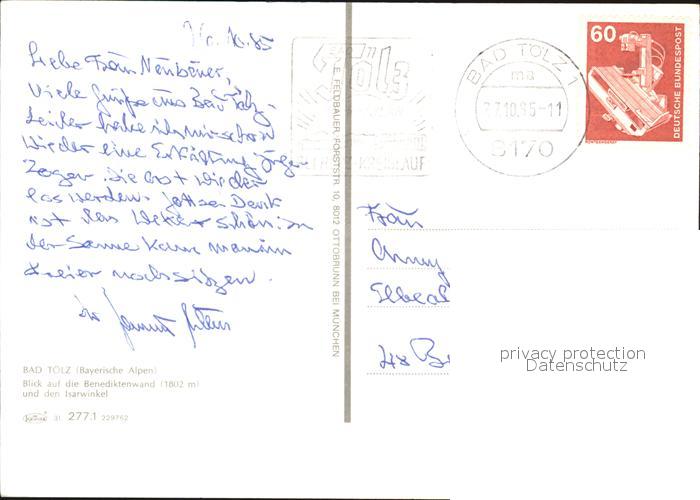 16.10.85
Liebe Frau Neubauer,
Viele Grüße aus Bad Tölz.
Leider habe ich mir schon
wieder eine Erkältung
die erst wieder
los werden.
ist das Wetter schön in
der Sonne kann man im
Freien noch sitzen.
Ihr
BAD TÖLZ (Bayerische Alpen)
Blick auf die Benediktenwand (1802 m)
und den Isarwinkel
31 277.1 229762
E. FELDBAUER, FORSTSTR. 10, 8012 OTTOBRUNN BEI MÜNCHEN
BAD TÖLZ 1
ma
17.10.85-11
8170
60
DEUTSCHE BUNDESPOST
Frau
Anny
48
privacy protection
Datenschutz